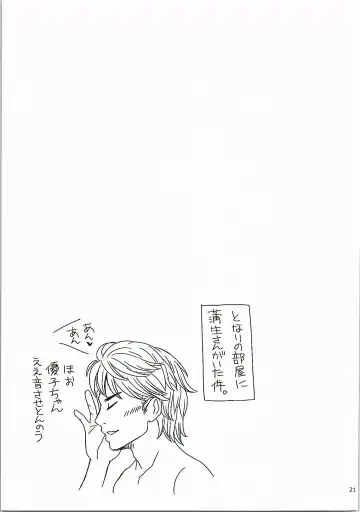 となりの部屋に
蒲生さんがいた件。
あん♥
あん
ほお
優子ちゃん
ええ音させとんのう
21